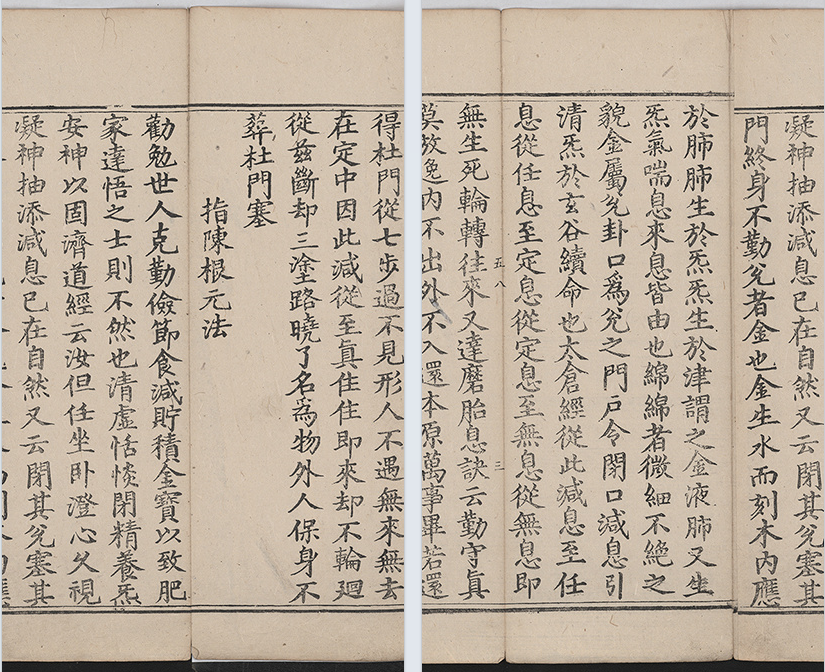 得杜門從七步過不見形人不遇無來無去
在定中因此減從至眞住住即來却不輪廻
從兹斷却三塗路曉了名爲物外人保身不
葬杜門塞
指陳根元法
勸勉世人克勤儉節食減貯積金寶以致肥
家達悟之士則不然也清虛恬惔閉精養炁
安神以固濟道經云汝但任坐卧澄心久視
凝神抽添減息已在自然又云閉其兊塞其
凝神抽添減息已在自然又云閉其兊塞其
門終身不勤兊者金也金生水而刻木内應
於肺肺生於炁炁生於津謂之金液肺又生
炁氣喘息來息皆由也綿綿者微細不絶之
貌金屬兊卦口爲兊之門戶令閉口減息引
清炁於玄谷續命也太倉經從此減息至任
息從任息至定息從定息至無息從無息即
五八 三
無生死輪轉往來又達磨胎息訣云勤守眞
莫放逸内不出外不入還本原萬事畢若還